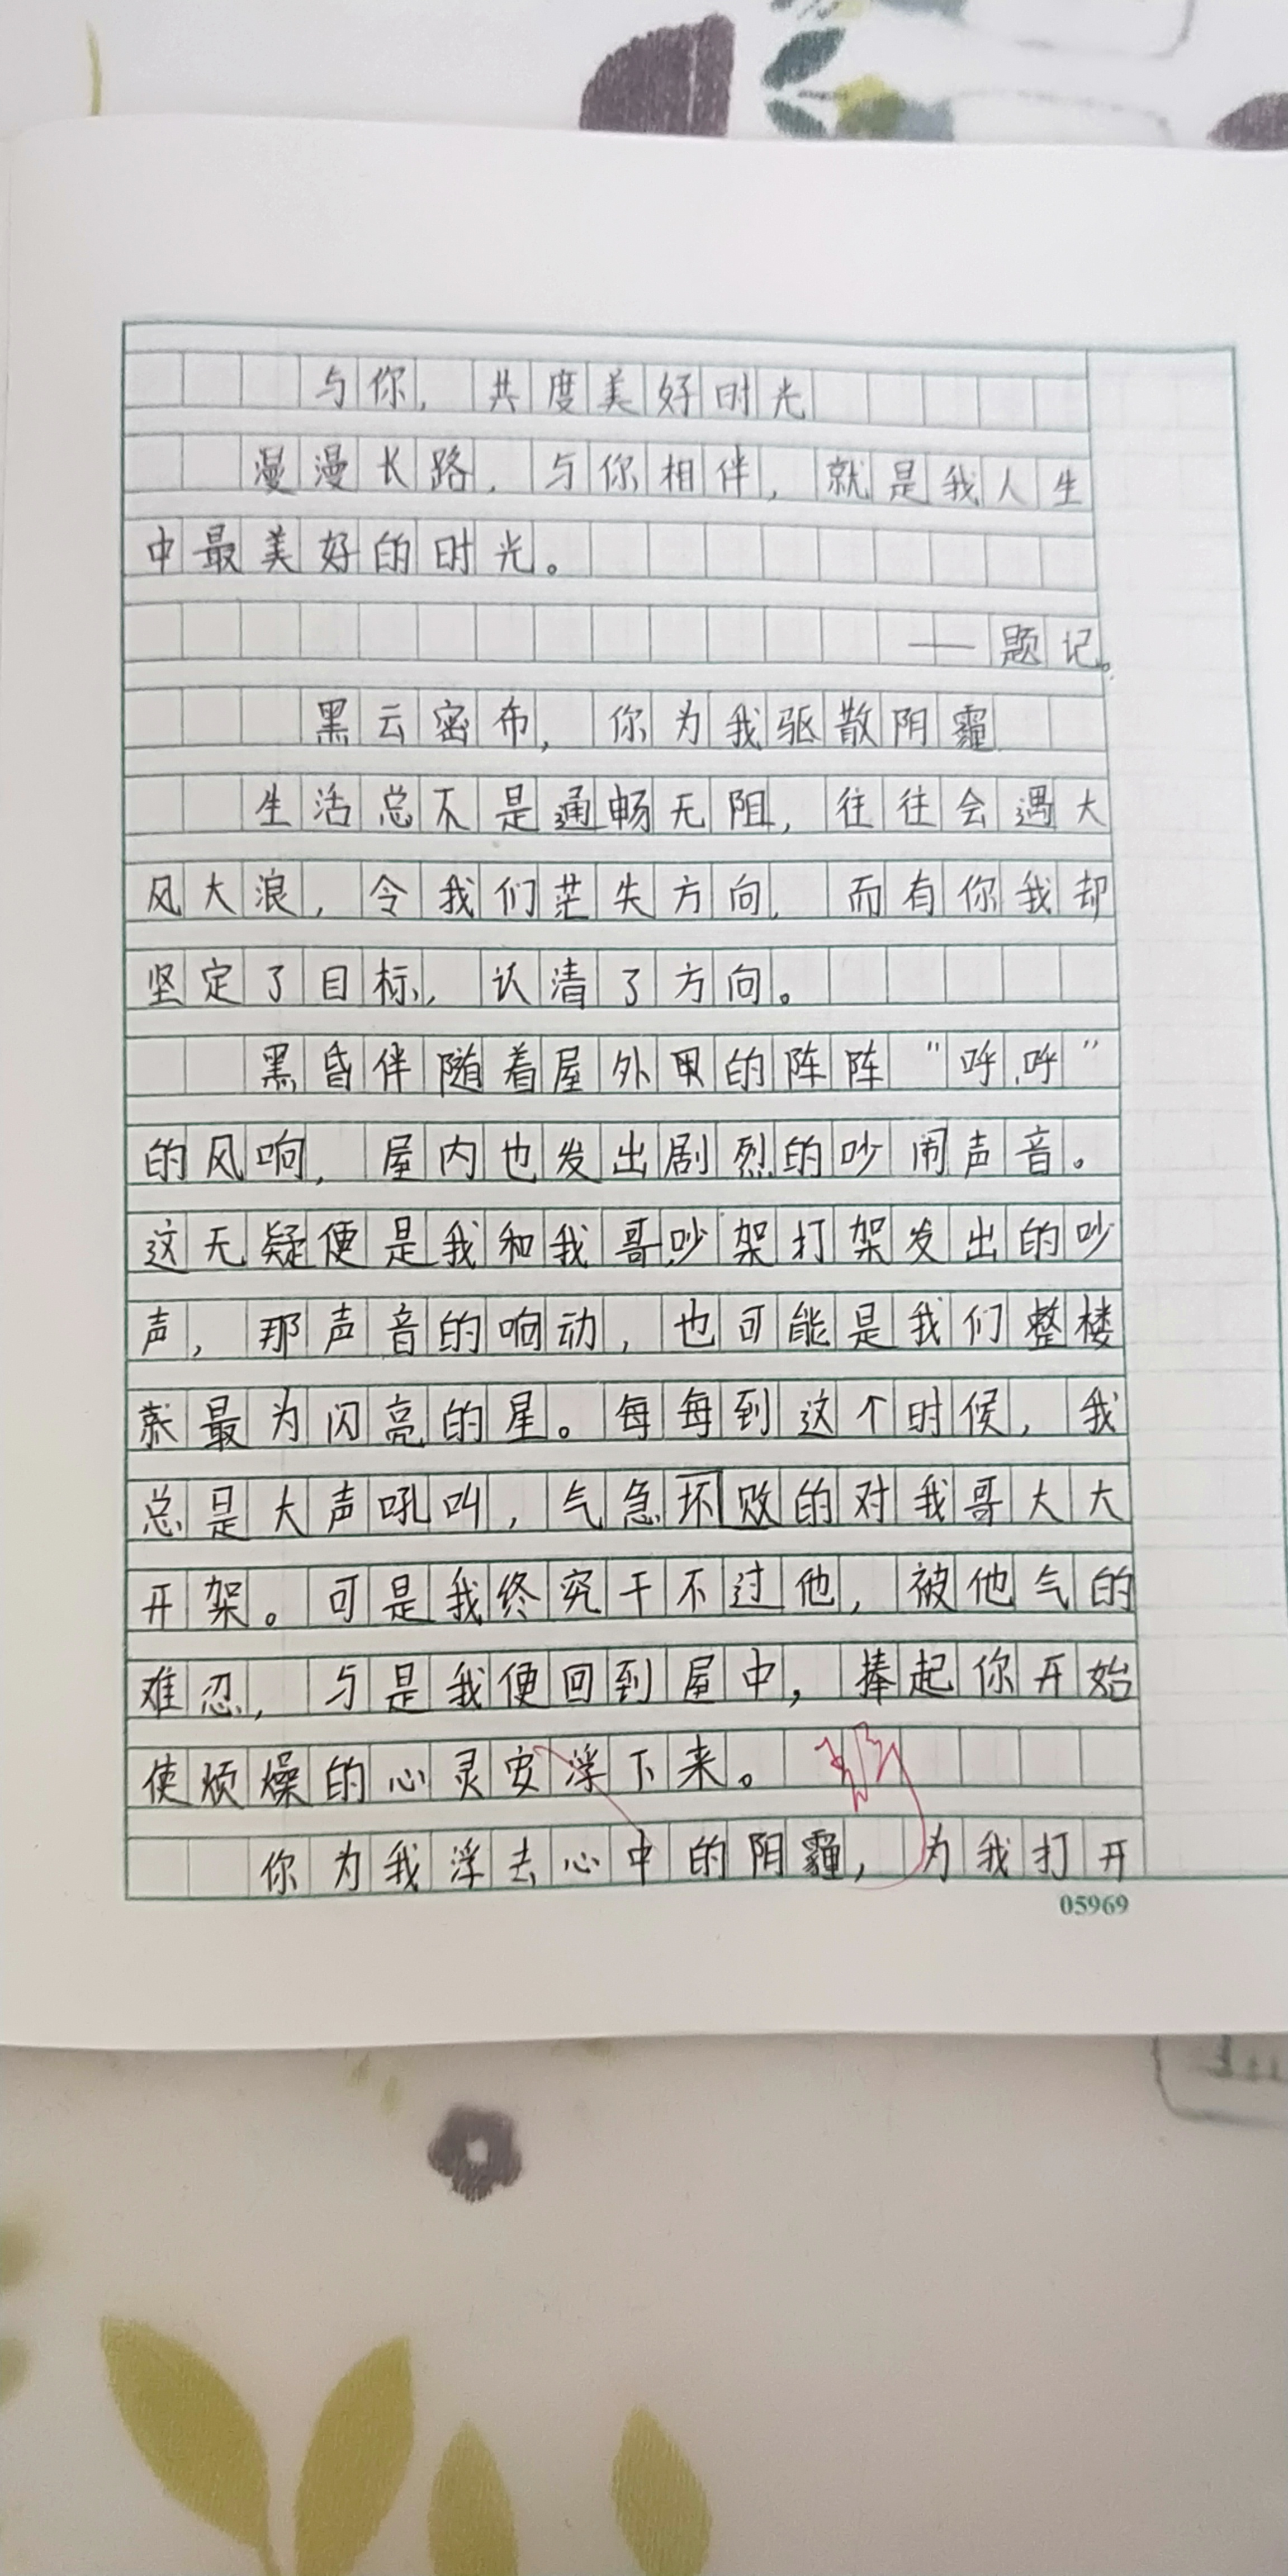 与你，共度美好时光
漫漫长路，与你相伴，就是我人生
中最美好的时光。
——题记。
黑云密布，你为我驱散阴霾
生活总不是通畅无阻，往往会遇大
风大浪，令我们茫失方向，而有你我却
坚定了目标，认清了方向。
黑昏伴随着屋外里的阵阵“呼呼”
的风响，屋内也发出剧烈的吵闹声音。
这无疑便是我和我哥吵架打架发出的吵
声，那声音的响动，也可能是我们整楼
最为闪亮的星。每每到这个时候，我
总是大声吼叫，气急坏败的对我哥大大
开架。可是我终究干不过他，被他气的
难忍，与是我便回到屋中，捧起你开始
使烦燥的心灵安浮下来。
你为我浮去心中的阴霾，为我打开
05969